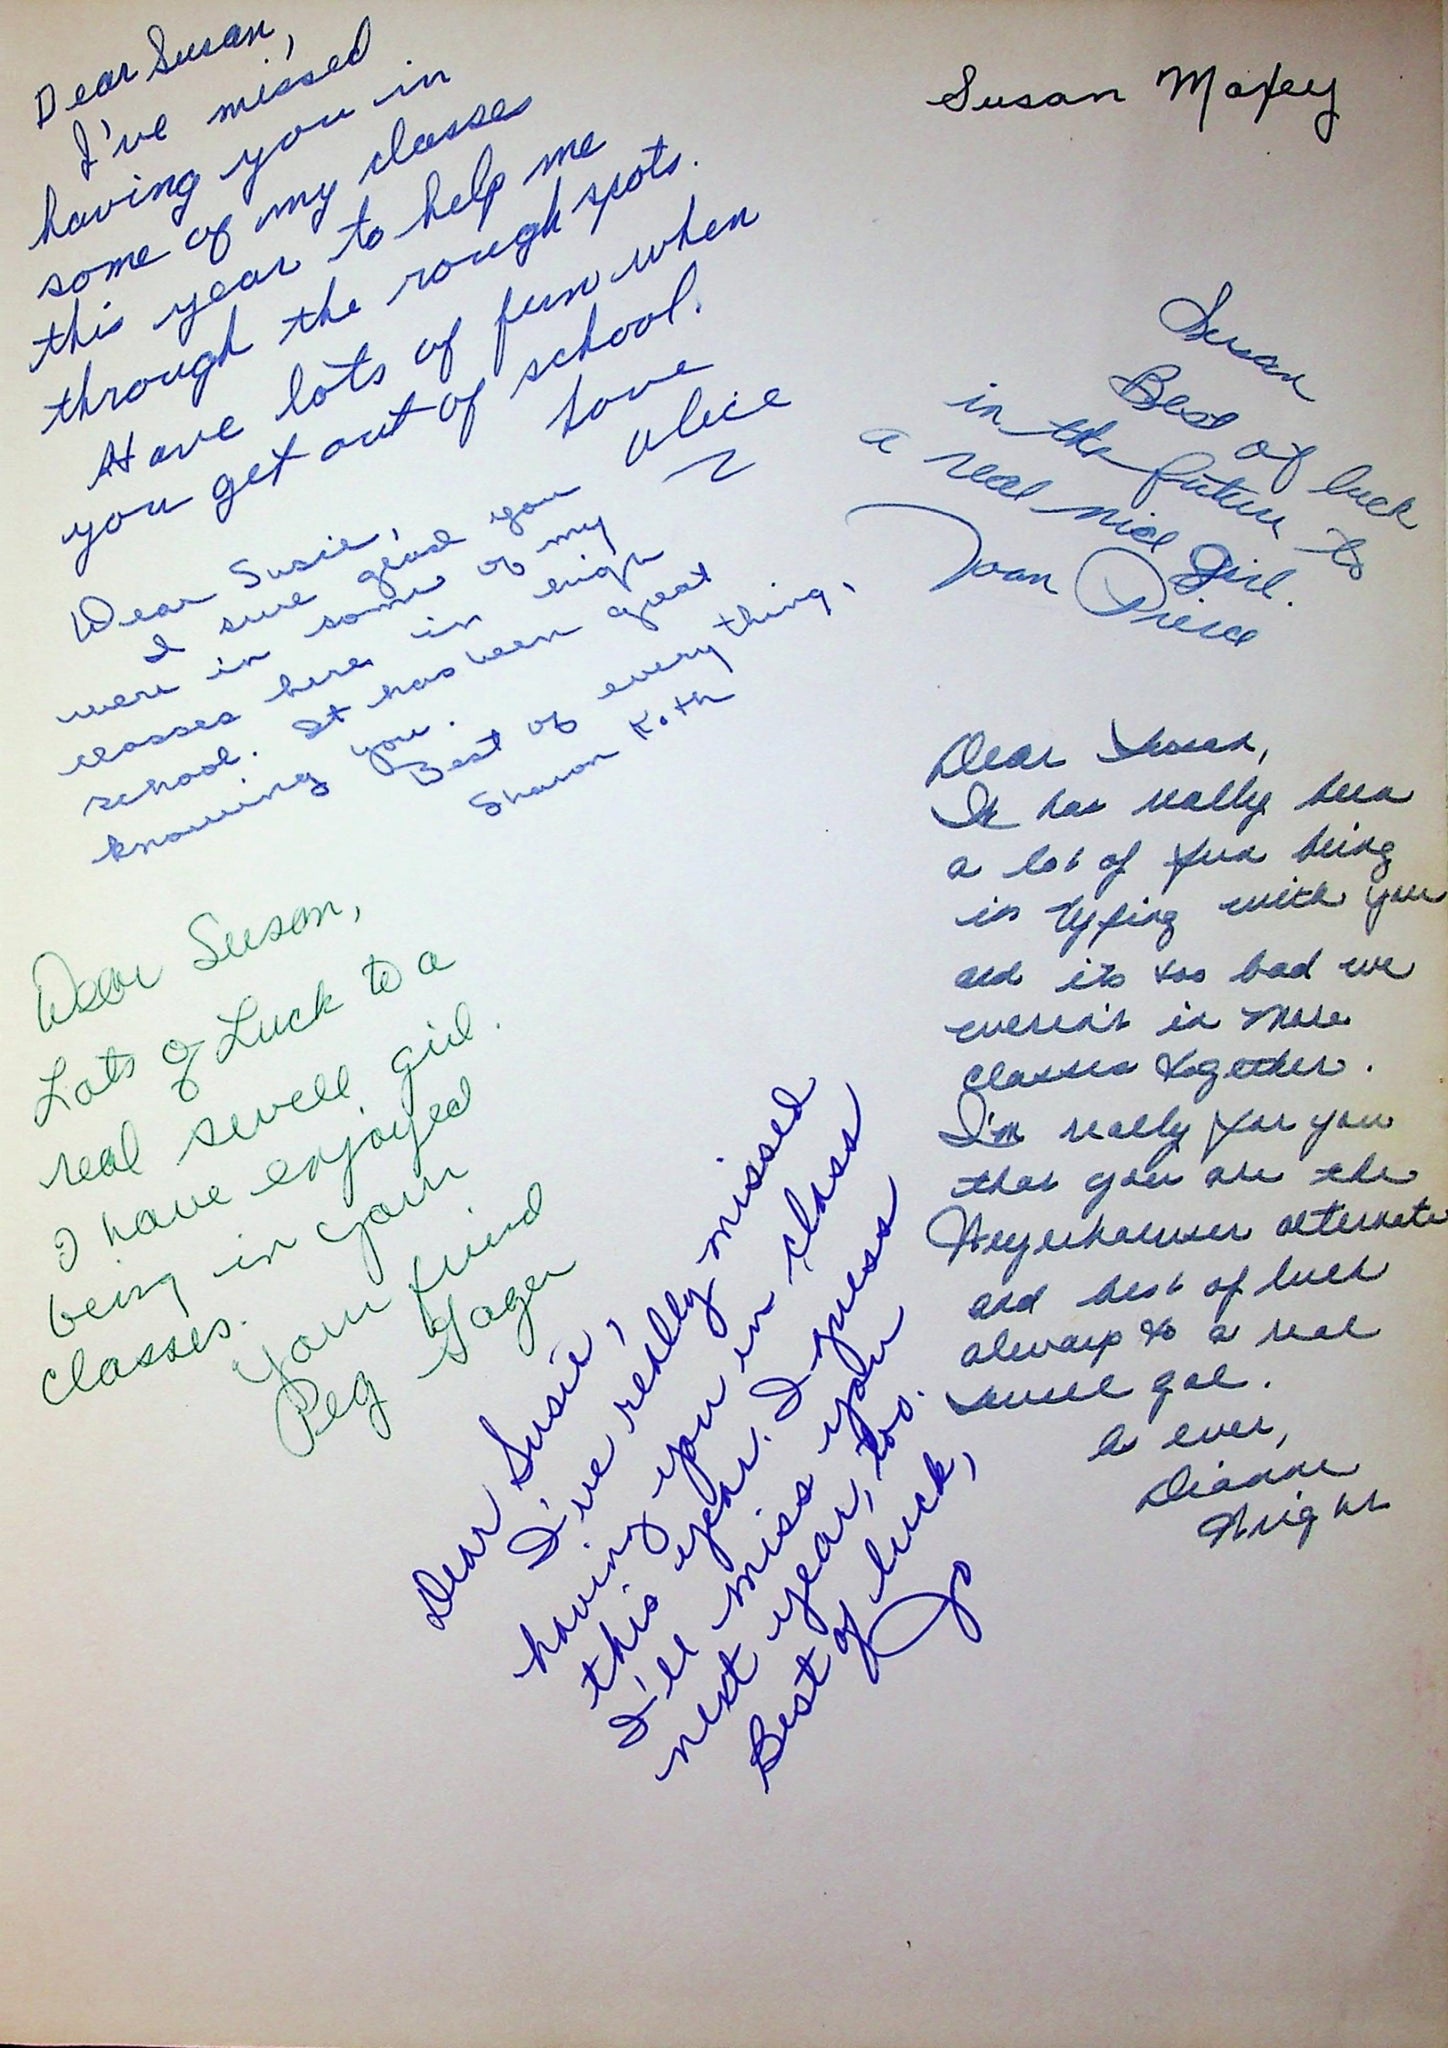 Susan Maxey
Dear Susan,
I've missed
having you in
some of my classes
this year to help me
through the rough spots.
Have lots of fun when
you get out of school.
Love
Alice
Susan
Best of luck
in the future to
a real nice girl.
Joan Pierce
Dear Susie,
I sure glad you
were in some of my
classes here in high
school. It has been great
knowing you.
Best of everything,
Sharon Koth
Dear Susan,
It has really been
a lot of fun being
in typing with you
and its too bad we
weren't in more
classes together.
I'm really for you
that you are the
Weyerhaeuser alternate
and best of luck
always to a real
swell gal.
As ever,
Dianne
Wright
Dear Susan,
Lots of Luck to a
real swell girl.
I have enjoyed
being in your
classes.
Your friend
Peg Yager
Dear Susie,
I've really missed
having you in class
this year. I guess
I'll miss you
next year, too.
Best of luck,
Jo